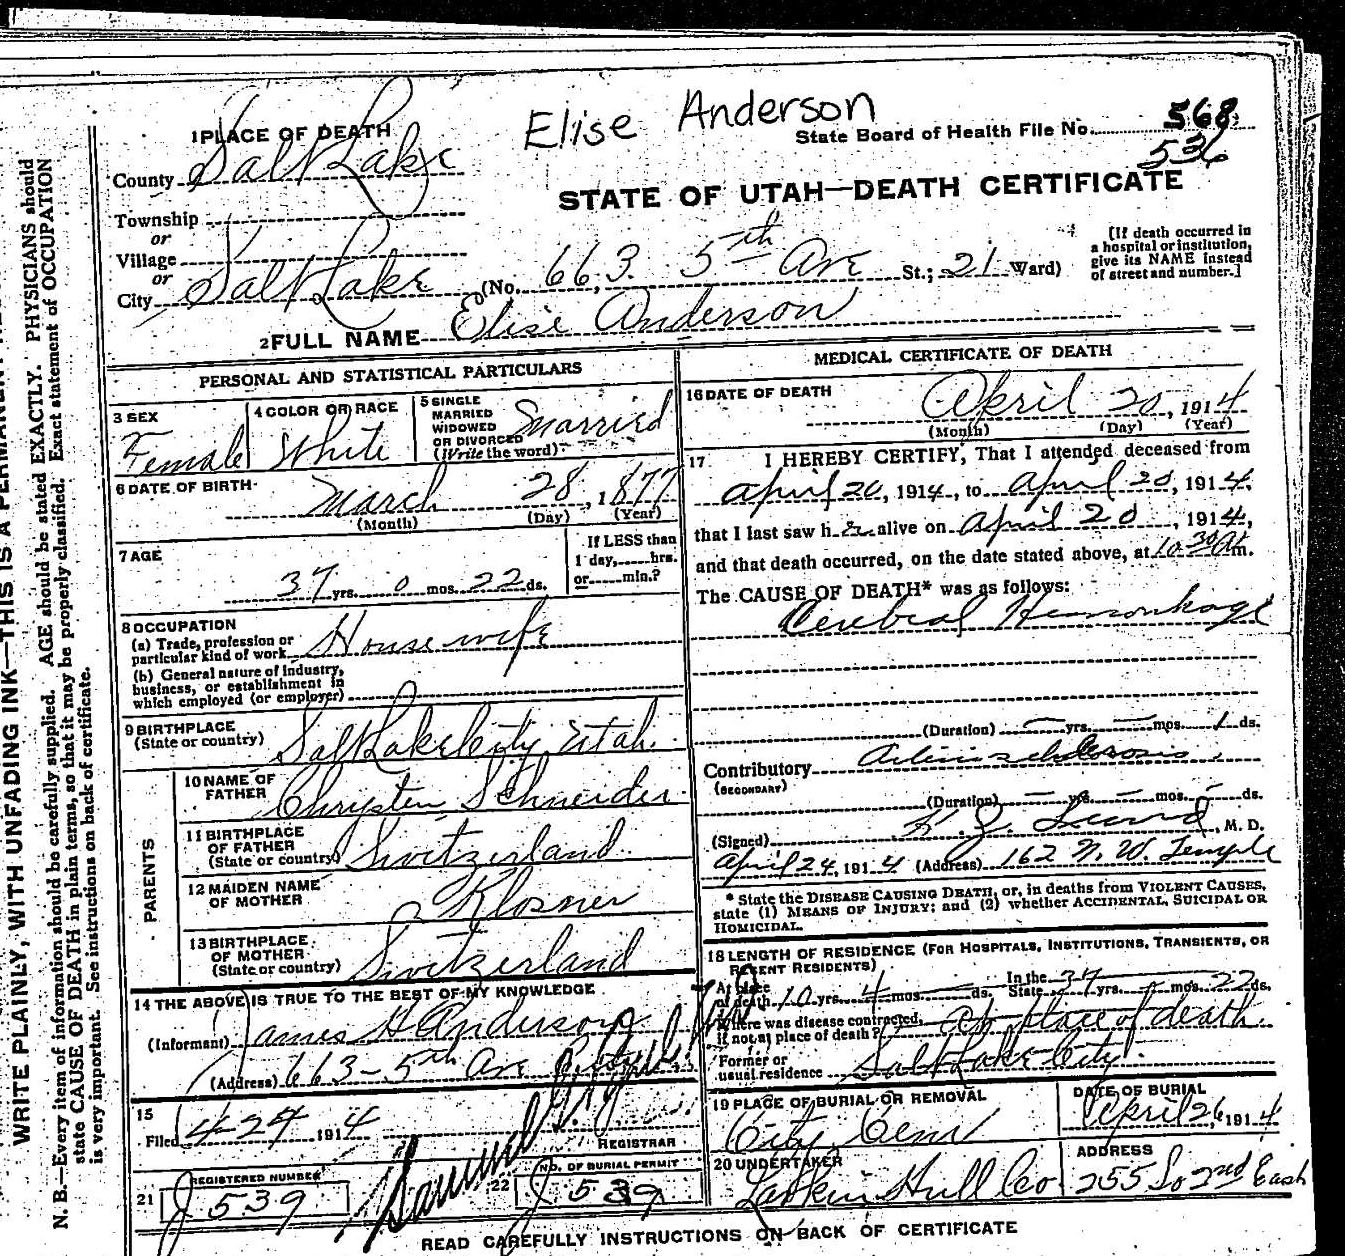 Elise Anderson
1 PLACE OF DEATH
State Board of Health File No. 568
536
County Salt Lake
STATE OF UTAH—DEATH CERTIFICATE
Township
or
Village
or
City Salt Lake (No. 663. 5th Ave St.; 21 Ward)
[If death occurred in
a hospital or institution,
give its NAME instead
of street and number.]
2 FULL NAME Elise Anderson
PERSONAL AND STATISTICAL PARTICULARS
3 SEX
Female
4 COLOR OR RACE
White
5 SINGLE
MARRIED
WIDOWED
OR DIVORCED
(Write the word)
Married
6 DATE OF BIRTH
March 28, 1877
(Month) (Day) (Year)
7 AGE
37 yrs. 0 mos. 22 ds.
If LESS than
1 day,......hrs.
or......min.?
8 OCCUPATION
(a) Trade, profession or
particular kind of work Housewife
(b) General nature of industry,
business, or establishment in
which employed (or employer)
9 BIRTHPLACE
(State or country) Salt Lake City Utah.
PARENTS
10 NAME OF
FATHER Chrysten Schneider
11 BIRTHPLACE
OF FATHER
(State or country) Switzerland
12 MAIDEN NAME
OF MOTHER Klosner
13 BIRTHPLACE
OF MOTHER
(State or country) Switzerland
14 THE ABOVE IS TRUE TO THE BEST OF MY KNOWLEDGE
(Informant) James H Anderson
(Address) 663 - 5th Ave
15
Filed 4-24 1914
REGISTRAR
21 REGISTERED NUMBER
J 539
22 NO. OF BURIAL PERMIT
J 539
MEDICAL CERTIFICATE OF DEATH
16 DATE OF DEATH
April 20, 1914
(Month) (Day) (Year)
17 I HEREBY CERTIFY, That I attended deceased from
April 20, 1914, to April 20, 1914,
that I last saw h er alive on April 20, 1914,
and that death occurred, on the date stated above, at 10 30 A m.
The CAUSE OF DEATH* was as follows:
Cerebral Hemorrhage
(Duration) — yrs. — mos. 1 ds.
Contributory
(SECONDARY)
(Duration) — yrs. — mos. — ds.
(Signed) Lund, M. D.
April 24, 1914 (Address) 162 N. W. Temple
* State the DISEASE CAUSING DEATH, or, in deaths from VIOLENT CAUSES,
state (1) MEANS OF INJURY; and (2) whether ACCIDENTAL, SUICIDAL OR
HOMICIDAL.
18 LENGTH OF RESIDENCE (FOR HOSPITALS, INSTITUTIONS, TRANSIENTS, OR
RECENT RESIDENTS)
At place
of death 10 yrs. 4 mos. — ds. In the
State 37 yrs. — mos. 22 ds.
Where was disease contracted,
if not at place of death? At place of death.
Former or
usual residence Salt Lake City
19 PLACE OF BURIAL OR REMOVAL
City Cem
DATE OF BURIAL
April 26, 1914
20 UNDERTAKER
Larkin Hull Co
ADDRESS
255 So 2nd East
READ CAREFULLY INSTRUCTIONS ON BACK OF CERTIFICATE
WRITE PLAINLY, WITH UNFADING INK—THIS IS A PERMANENT
N. B.—Every item of information should be carefully supplied. AGE should be stated EXACTLY. PHYSICIANS should
state CAUSE OF DEATH in plain terms, so that it may be properly classified. Exact statement of OCCUPATION
is very important. See instructions on back of certificate.